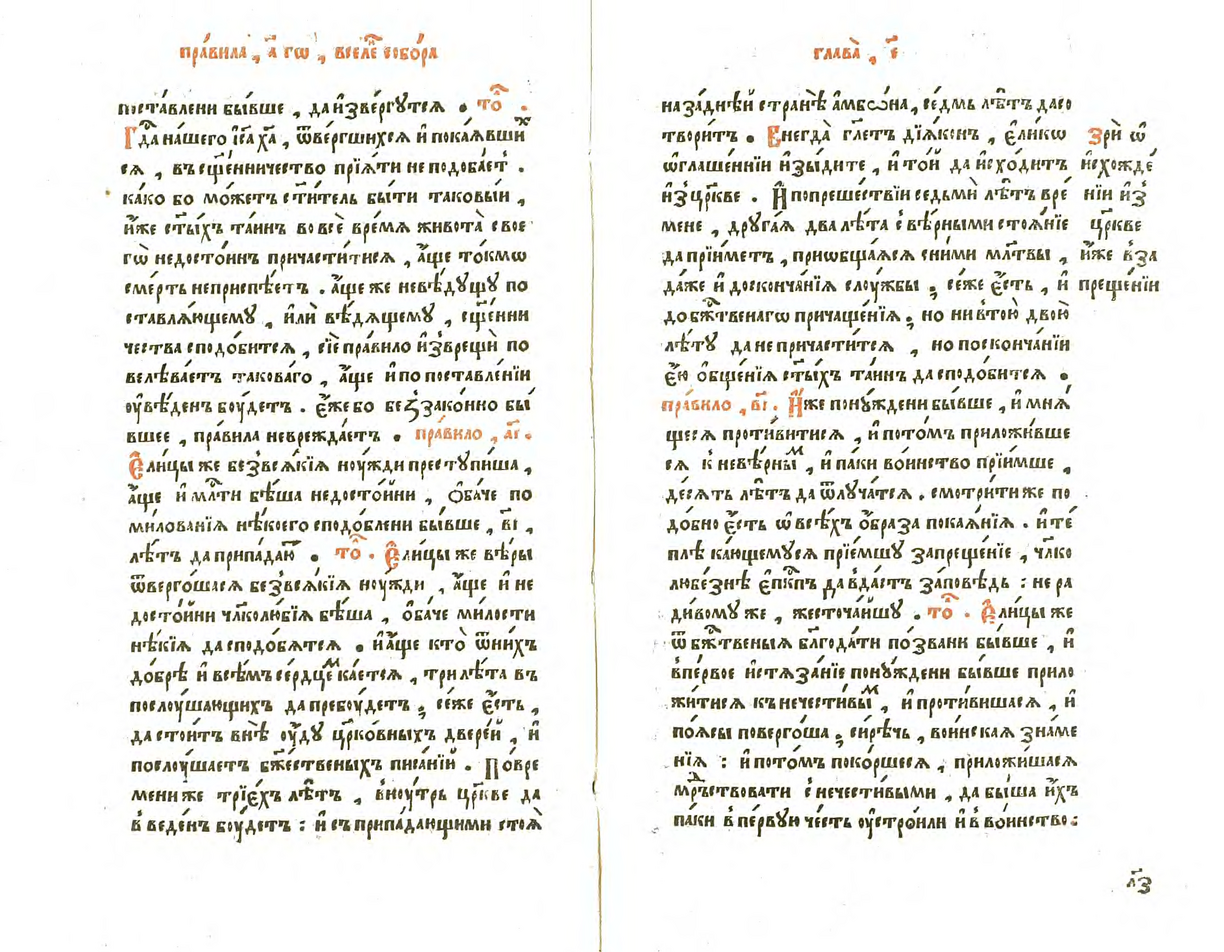 пра́вила , а҃ гѡ , вселе́ собо́ра
поста́влени бы́вше , да и҆зве́ргꙋтсѧ . то́ .
Гд҃а на́шего і҆с҃а х҃а , ѿве́ргшихсѧ и҆ покаѧ́вши х
сѧ , въ сщ҃е́нничество прїѧ́ти не подоба́ет .
ка́ко бо мо́жетъ ст҃и́тель бы́ти таковы́и ,
и҆́же ст҃ы́хъ та́инъ во всѐ вре́мѧ живота̀ свое
гѡ̀ недосто́инъ причасти́тисѧ , а҆́ще то́кмѡ
сме́рть не приспѣ́етъ . а҆́ще же невѣ́дꙋщꙋ по
ставлѧ́ющемꙋ , и҆лѝ вѣ́дѧщемꙋ , сщ҃е́нни
чества сподо́битсѧ , сїѐ пра́вило и҆зврещѝ по
велѣва́етъ таковаго , а҆́ще и҆ по поставле́нїи
ᲂу҆вѣ́денъ бꙋ́детъ . є҆́же бо беззако́нно бы́
вшее , пра́вила не врежда́етъ . пра́вило , а҃і .
Є҆ли́цы же без̾ всѧ́кїѧ нꙋ́жди престꙋпи́ша ,
а҆́ще и҆ мл҃ти бѣ́ша недосто́йни , ѻ҆ба́че по
милова́нїѧ нѣ́коего сподо́блени бы́вше , в҃і ,
лѣ́тъ да припа́даю . то́ . Є҆ли́цы же вѣ́ры
ѿверго́шасѧ без̾ всѧ́кїѧ нꙋ́жди , а҆́ще и҆ не
досто́йни чл҃колю́бїѧ бѣ́ша , ѻ҆ба́че ми́лости
нѣ́кїѧ да сподо́бѧтсѧ . и҆ а҆́ще кто̀ ѿ ни́хъ
до́брѣ и҆ всѣ́мъ се́рдцемъ ка́етсѧ , три лѣ́та въ
послꙋ́шающихъ да пребꙋ́детъ , се́же є҆́сть ,
да стои́тъ внѣ̀ ᲂу҆́дꙋ цр҃ко́вныхъ двере́й , и҆
послꙋ́шаетъ бж҃е́ственыхъ писа́нїй . По вре
мени же трїе́хъ лѣ́тъ , внꙋ́трь цр҃кве да
введе́нъ бꙋ́детъ : и҆ съ припа́дающими стоѧ̀
глава̀ , е҃
на за́днѣй странѣ̀ а҆мбѡ́на , се́дмь лѣ́тъ да со
твори́тъ . Е҆негда̀ гл҃етъ дїѧ́конъ , є҆ли́кѡ
ѡ҆глаше́ннїи и҆зыди́те , и҆ то́й да и҆схо́дитъ
и҆з̾ цр҃кве . И҆ по преше́ствїи седмѝ лѣ́тъ вре́
мене , дрꙋга́ѧ два лѣ́та с̾ вѣ́рными стоѧ́нїе
да прїи́метъ , приѡбща́ѧсѧ с ни́ми мл҃твы ,
да́же и҆ до сконча́нїѧ слꙋ́жбы , се́же є҆́сть , и҆
до бж҃твенагѡ причаще́нїѧ , но ни в тою̀ двою̀
лѣ́тꙋ да не причасти́тсѧ , но по сконча́нїи
є҆ю̀ ѻ҆бще́нїѧ ст҃ы́хъ та́инъ да сподо́битсѧ .
пра́вило , в҃і . И҆́же понꙋ́ждени бы́вше , и҆ мнѧ́
щесѧ проти́витисѧ , и҆ пото́мъ приложи́вше
сѧ к невѣ́рны м , и҆ па́ки во́инство прїи́мше ,
де́сѧть лѣ́тъ да ѿлꙋча́тсѧ . смотри́ти же по
до́бно є҆́сть ѡ҆ всѣ́хъ ѻ҆́браза покаѧ́нїѧ . и҆ те́
плѣ ка́ющемꙋсѧ прїе́мшꙋ запреще́нїе , чл҃ко
любе́знѣ є҆пⷭ҇кпъ да вда́стъ за́повѣдь : не ра
ди́вомꙋ же , жесточа́йшꙋ . то́ . Є҆ли́цы же
ѿ бж҃твеныѧ бл҃года́ти по́звани бы́вше , и҆
в пе́рвое и҆стѧза́нїе понꙋ́ждени бы́вше прило
жи́тисѧ къ нечести́вы м , и҆ проти́вишасѧ , и҆
по́ѧсы поверго́ша , си́рѣчь , во́инскаѧ зна́ме
нїѧ : и҆ пото́мъ поко́ршесѧ , приложи́шасѧ
мр҃ьствовати с̾ нечести́выми , да бы́ша и҆́хъ
па́ки в пе́рвꙋю че́сть ᲂу҆стро́или и҆ в во́инство :
Зрѝ ѡ҆
и҆схожде́
нїи и҆з̾
цр҃кве
и҆́же в за
преще́нїи
л҃з